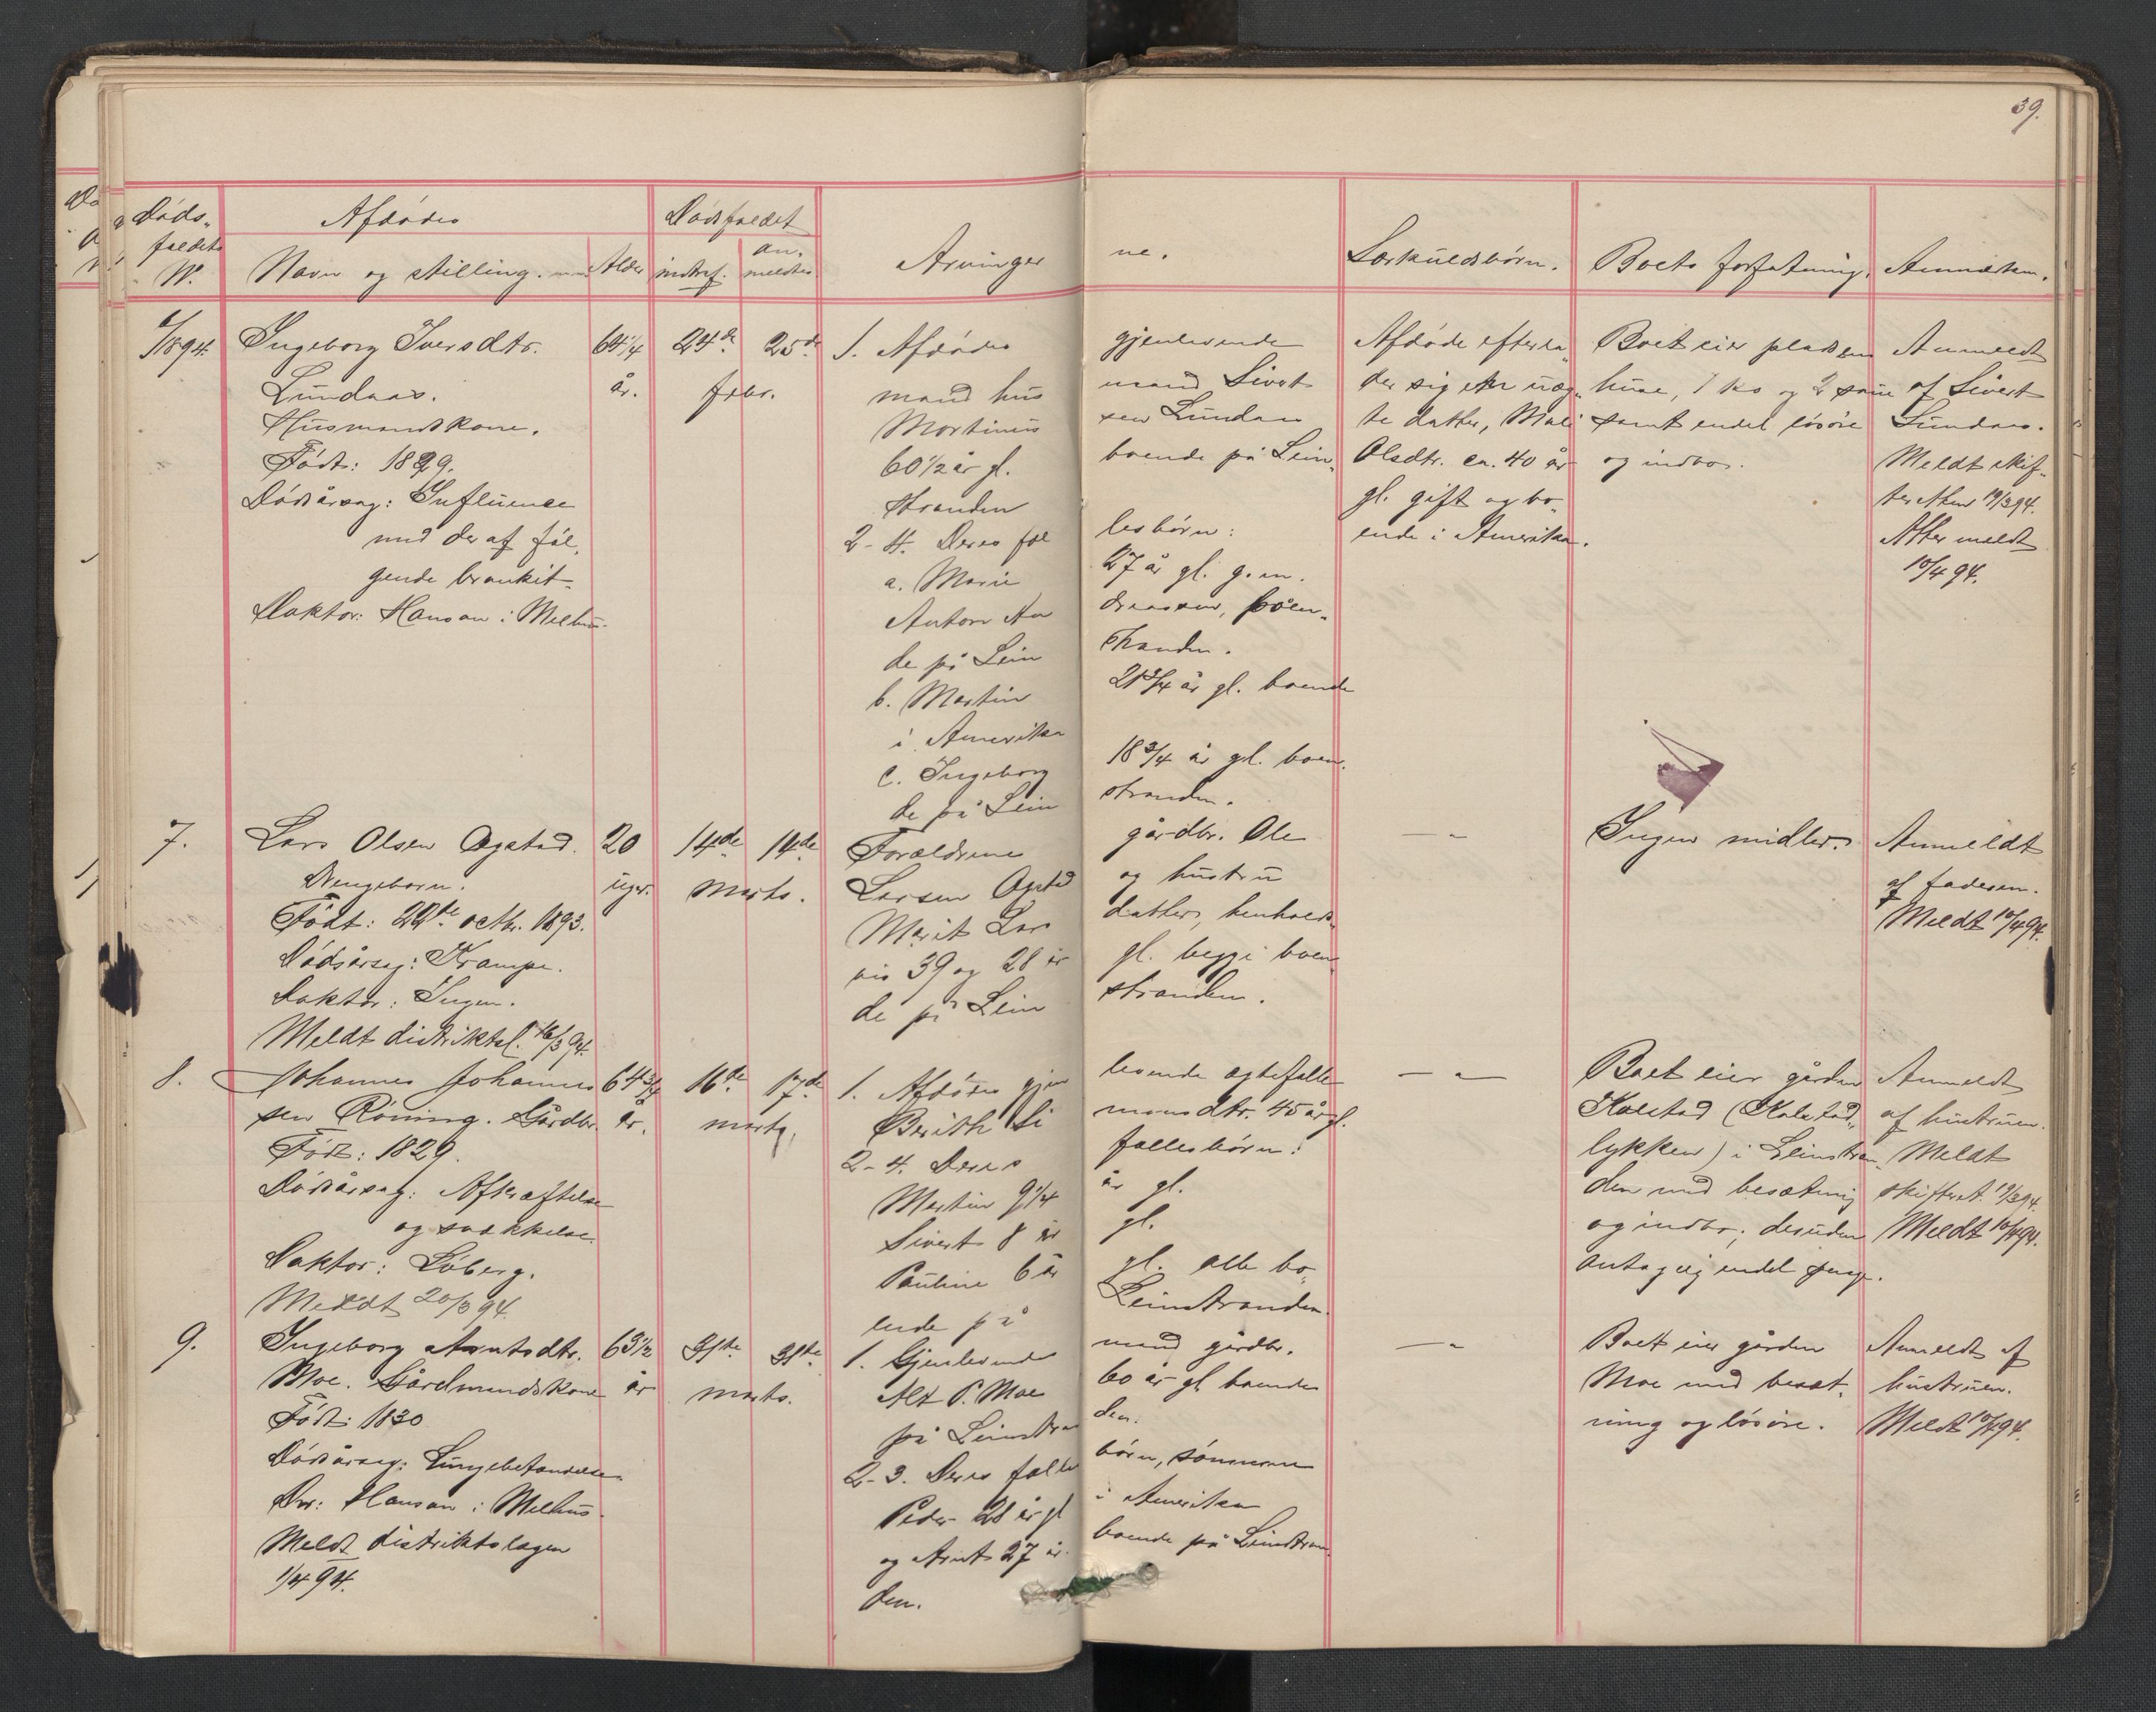 39.
Døds-
faldets
No.
Afdødes
Navn og stilling.
Alder
Dødsfaldet
indtraf.
an-
meldtes
Arvinger
ne.
Særkuldsbørn.
Boets forfatning.
Anmærkn.
6/1894.
Ingeborg Iversdtr.
Lundaas.
Husmandskone.
Født: 1829.
Dødsårsag: Influense
med deraf føl-
gende bronkit.
Doktor: Hansen i Melhus.
64 1/4
år.
24de
25de
febr.
1. Afdødes gjenlevende
mand husmand Sivert
Martinussen Lundaas
60 1/2 år gl. boende på Lein-
stranden
2-4. Deres fællesbørn:
a. Marie 27 år gl. g. m.
Anton Andreassen, boen-
de på Leinstranden.
b. Martin 21 3/4 år gl. boende
i Amerika
c. Ingeborg 18 3/4 år gl. boen-
de på Leinstranden.
Afdøde efterla-
der sig en uæg-
te datter, Mali
Olsdtr. ca. 40 år
gl. gift og bo-
ende i Amerika.
Boet eier pladsens
huse, 1 ko og 2 saue
samt endel løsøre
og indbo.
Anmeldt
af Sivert
Lundaas.
Meldt skif-
teretten 19/3 94.
Atter meldt
10/4 94.
7.
Lars Olsen Ogstad.
Drengebarn.
Født: 22de octbr. 1893.
Dødsårsag: Krampe.
Doktor: Ingen.
Meldt distriktsl. 16/3 94.
20
uger.
14de
14de
marts.
Forældrene gårdbr. Ole
Larsen Ogstad og hustru
Marit Larsdatter, henholds-
vis 39 og 28 år gl. begge boen-
de på Leinstranden.
— " —
Ingen midler.
Anmeldt
af faderen.
Meldt 10/4 94.
8.
Johannes Johannes-
sen Røning. Gårdbr.
Født: 1829.
Dødsårsag: Afkræftelse
og svækkelse.
Doktor: Løberg.
Meldt 20/3 94.
64 3/4
år.
16de
17de
marts.
1. Afdødes gjenlevende ægtefælle
Berith Simonsdtr. 45 år gl.
2-4. Deres fællesbørn:
Martin 9 1/4 år gl.
Sivert 8 år gl.
Pauline 6 år gl. alle bo-
ende på Leinstranden.
— " —
Boet eier gården
Kolstad (Kolstad-
lykken) i Leinstran-
den med besætning
og indbo; desuden
antagelig endel penge.
Anmeldt
af hustruen.
Meldt
skifteret. 19/3 94.
Meldt 10/4 94.
9.
Ingeborg Arntsdtr.
Moe. Gårdmandskone
Født: 1830
Dødsårsag: Lungebetændelse.
Dr: Hansen i Melhus.
Meldt distriktslægen
1/4 94.
63 1/2
år
31te
31te
marts.
1. Gjenlevende mand gårdbr.
Alt P. Moe 60 år gl boende
på Leinstranden.
2-3. Deres fællesbørn, sønnerne
Peder 28 år gl i Amerika
og Arnt 27 år boende på Leinstran-
den.
— " —
Boet eier gården
Moe med besæt-
ning og løsøre.
Anmeldt af
hustruen.
Meldt 10/4 94.